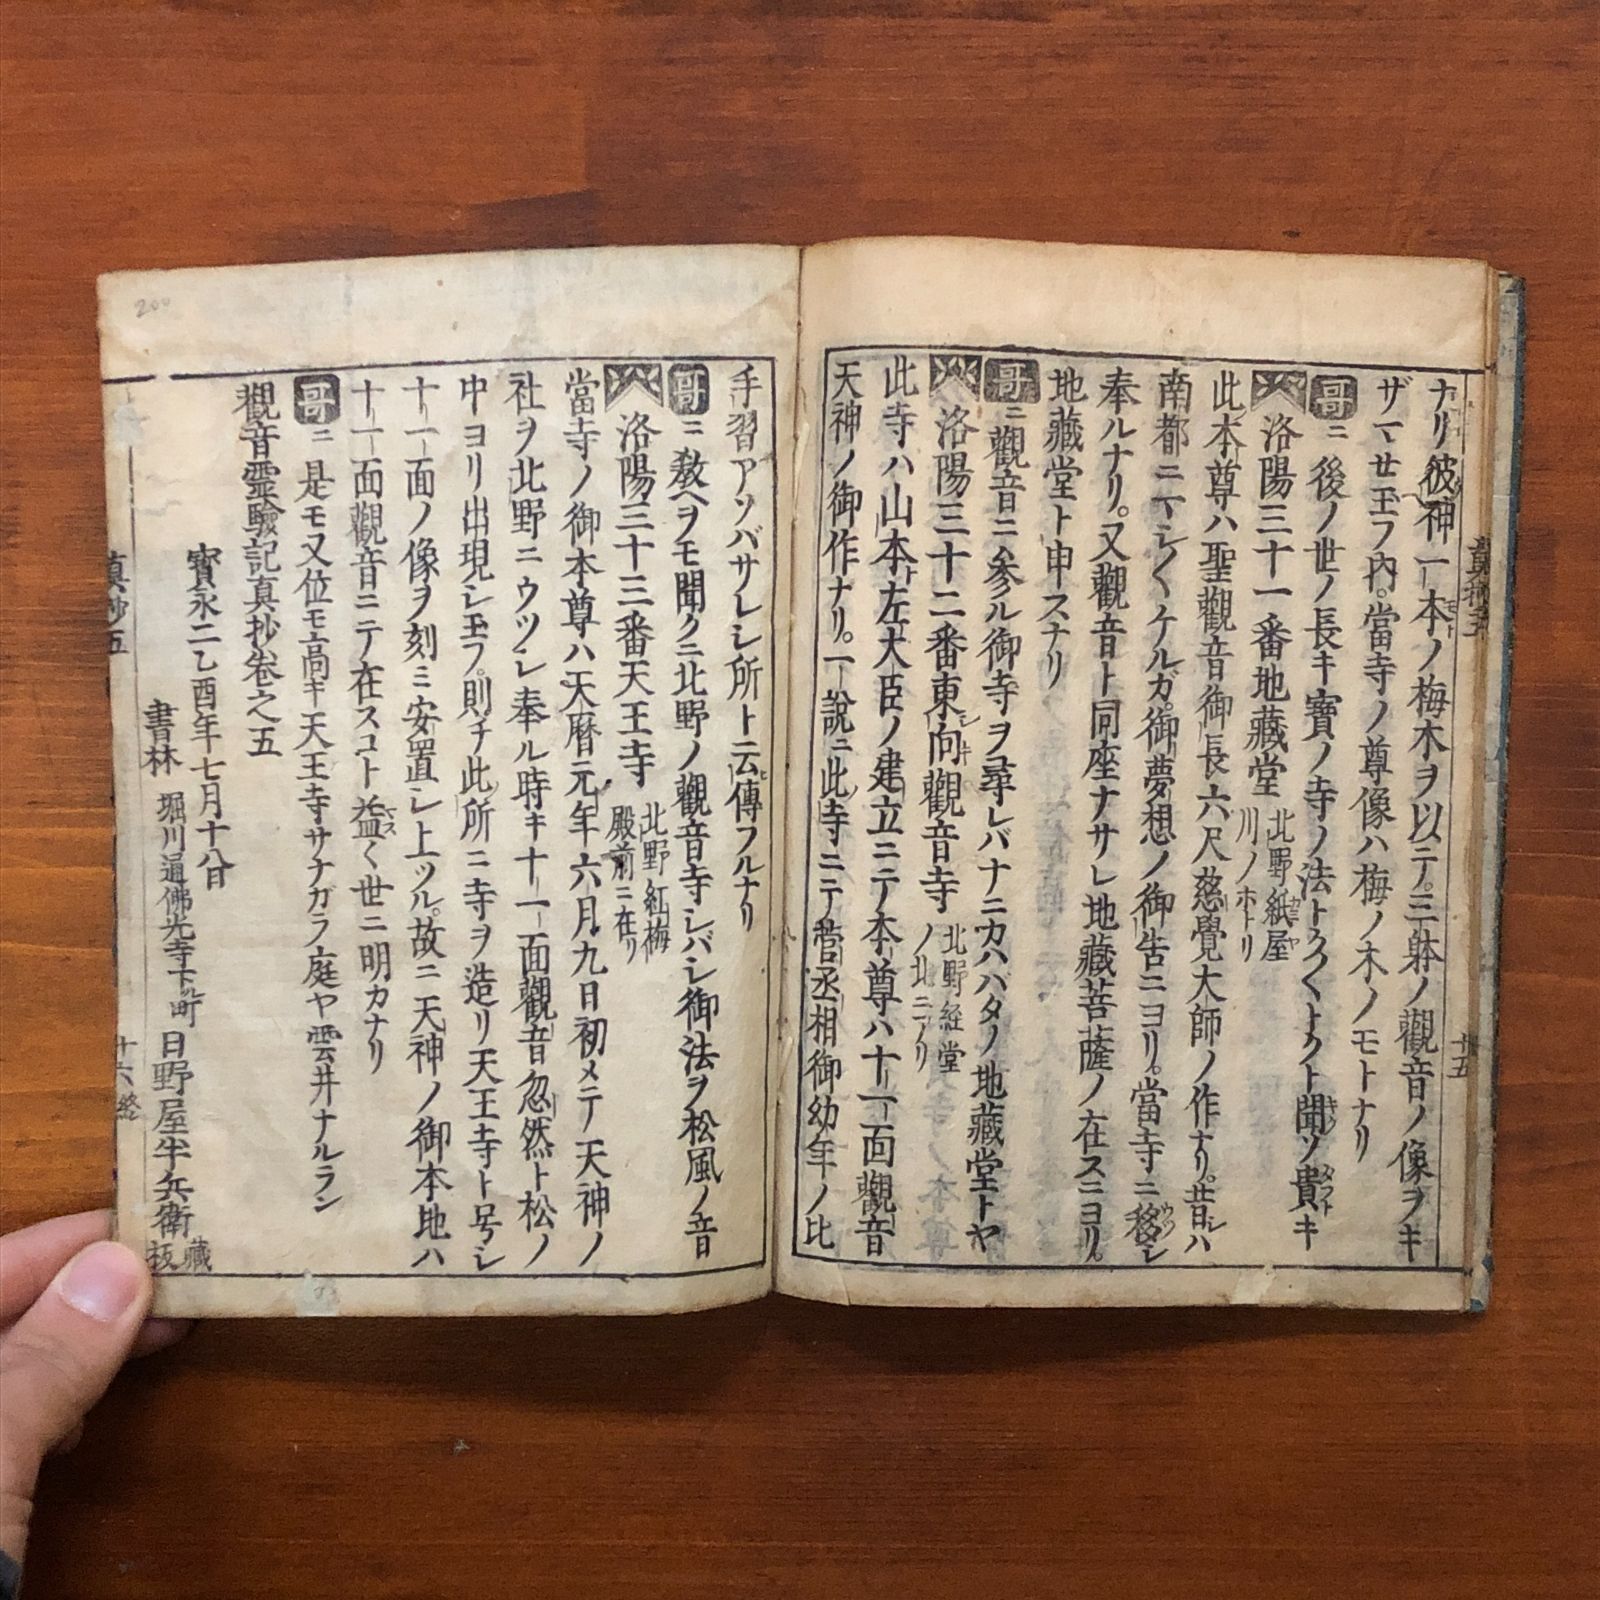 ナリ彼神一本ノ梅木ヲ以テ三躰ノ觀音ノ像ヲキ
ザマセ玉フ内當寺ノ尊像ハ梅ノ木ノモトナリ
哥ニ 後ノ世ノ長キ寳ノ寺ノ法トク〱トクト聞ソ貴キ
洛陽三十一番地藏堂 北野紙屋川ノホトリ
此本尊ハ聖觀音御長六尺慈覺大師ノ作ナリ昔シハ
南都ニマシ〱ケルガ御夢想ノ御告ニヨリ當寺ニ移シ
奉ルナリ。又觀音ト同座ナサレ地藏菩薩ノ在スニヨリ。
地藏堂ト申スナリ
哥ニ 觀音ニ参クル御寺ヲ尋レバナニカハバタノ地藏堂トヤ
洛陽三十二番東向觀音寺 北野経堂ノ北ニアリ
此寺ハ山本左大臣ノ建立ニテ本尊ハ十一面觀音
天神ノ御作ナリ。一說ニ此寺ニテ菅丞相御幼年ノ比
手習アソバサレシ所ト云傳フルナリ
哥ニ 敎ヘヲモ聞クニ北野ノ觀音寺シバシ御法ヲ松風ノ音
洛陽三十三番天王寺 北野紅梅殿前ニ在リ
當寺ノ御本尊ハ天暦元年六月九日初メテ天神ノ
社ヲ北野ニウツシ奉ル時キ十一面觀音忽然ト松ノ
中ヨリ出現シ玉フ。則チ此所ニ寺ヲ造リ天王寺ト号シ
十一面ノ像ヲ刻ミ安置シ上ツル。故ニ天神ノ御本地ハ
十一面觀音ニテ在スコト益〱世ニ明カナリ
哥ニ 是モ又位モ高キ天王寺サナガラ庭ヤ雲井ナルラン
觀音霊驗記真抄卷之五
寳永二乙酉年七月十八日
書林 堀川通佛光寺下町 日野屋半兵衛 藏板
真抄五 十六終